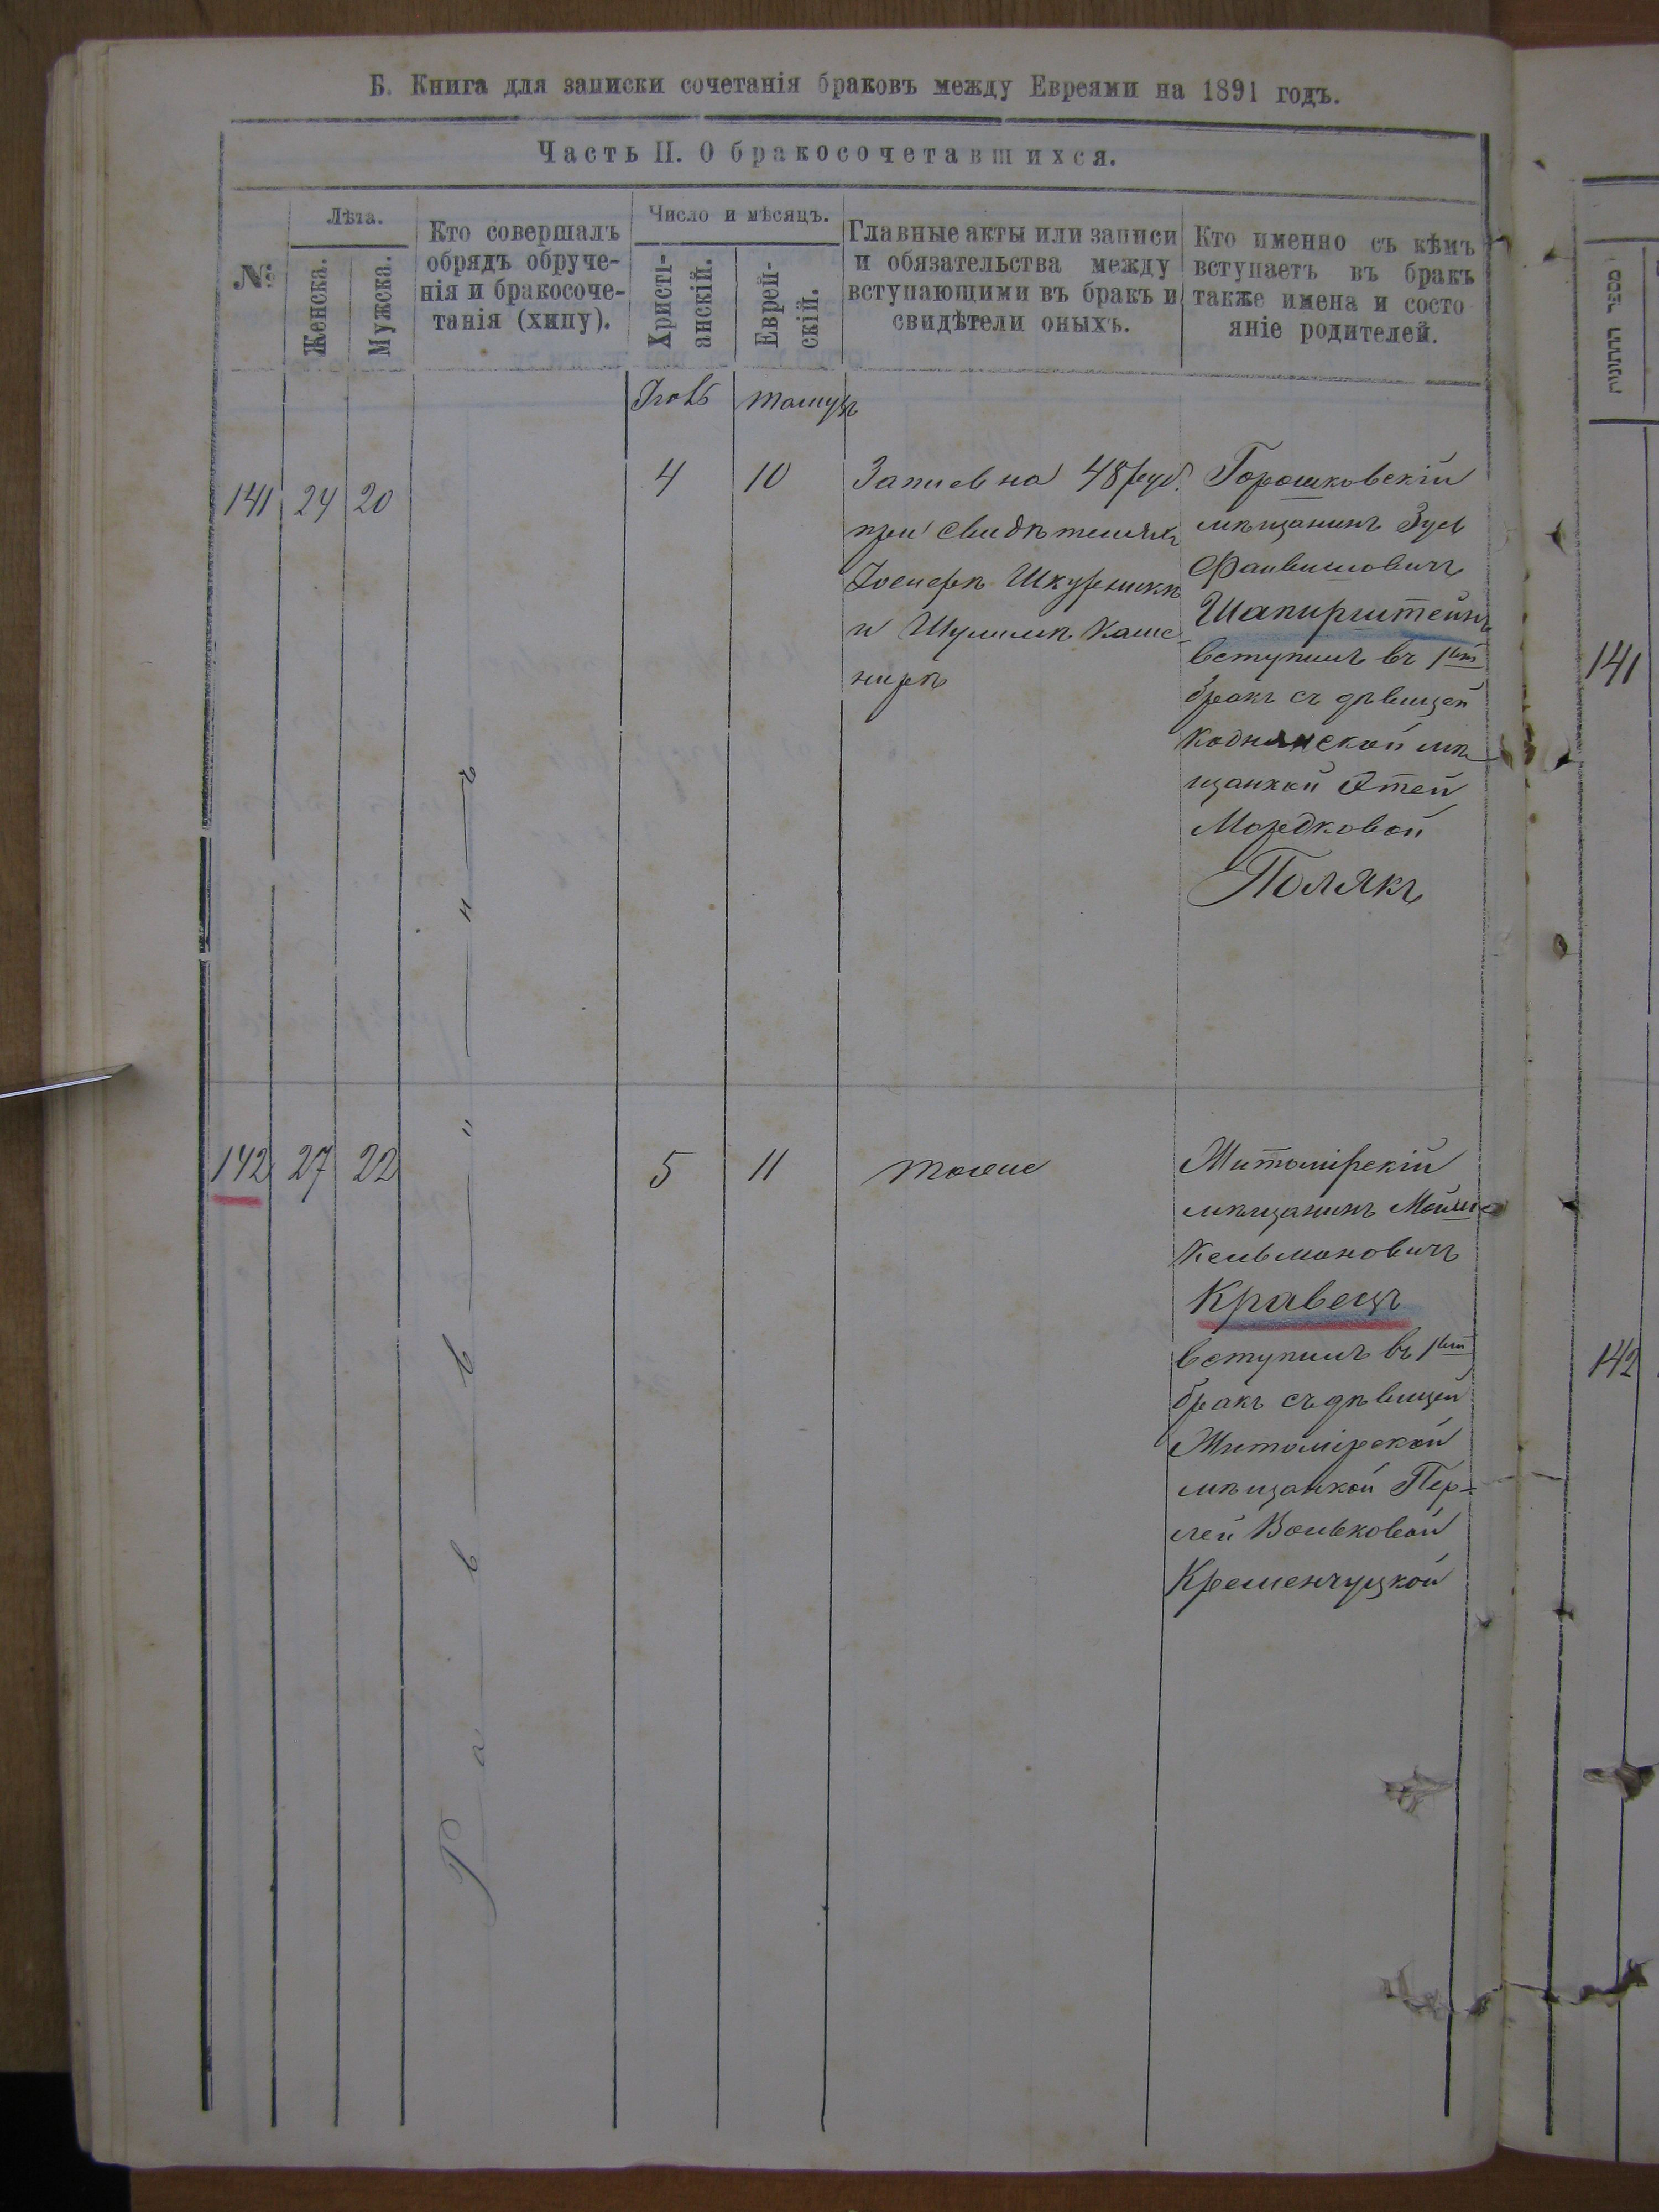 Б. Книга для записки сочетанія браковъ между Евреями на 1891 годъ.
Часть II. О бракосочетавшихся.
№
Лѣта.
Женска.
Мужска.
Кто совершалъ
обрядъ обруче-
нія и бракосоче-
танія (хипу).
Число и мѣсяцъ.
Христі-
анскій.
Еврей-
скій.
Главные акты или записи
и обязательства между
вступающими въ бракъ и
свидѣтели оныхъ.
Кто именно съ кѣмъ
вступаетъ въ бракъ
также имена и состо
яніе родителей.
מספר החתונה
Іюль Тамузъ
141 24 20
4 10
Запись на 48 руб.
при свидѣтеляхъ
Іосифѣ Шкурникѣ
и Шулимѣ Каше-
нирѣ
Горошковскій
мѣщанинъ Зусь
Фаивишовичъ
Шапирштейнъ
вступилъ въ 1ый
бракъ съ дѣвицей
Коднянской мѣ
щанкой Этей
Мордковой
Полякъ
141
142 27 22
5 11
тоже
Житомірскій
мѣщанинъ Мойше
Кельмановичъ
Кравецъ
вступилъ въ 1ый
бракъ съ дѣвицей
Житомірской
мѣщанкой Пер-
лей Вольковой
Кременчуцкой
142
Раввинъ